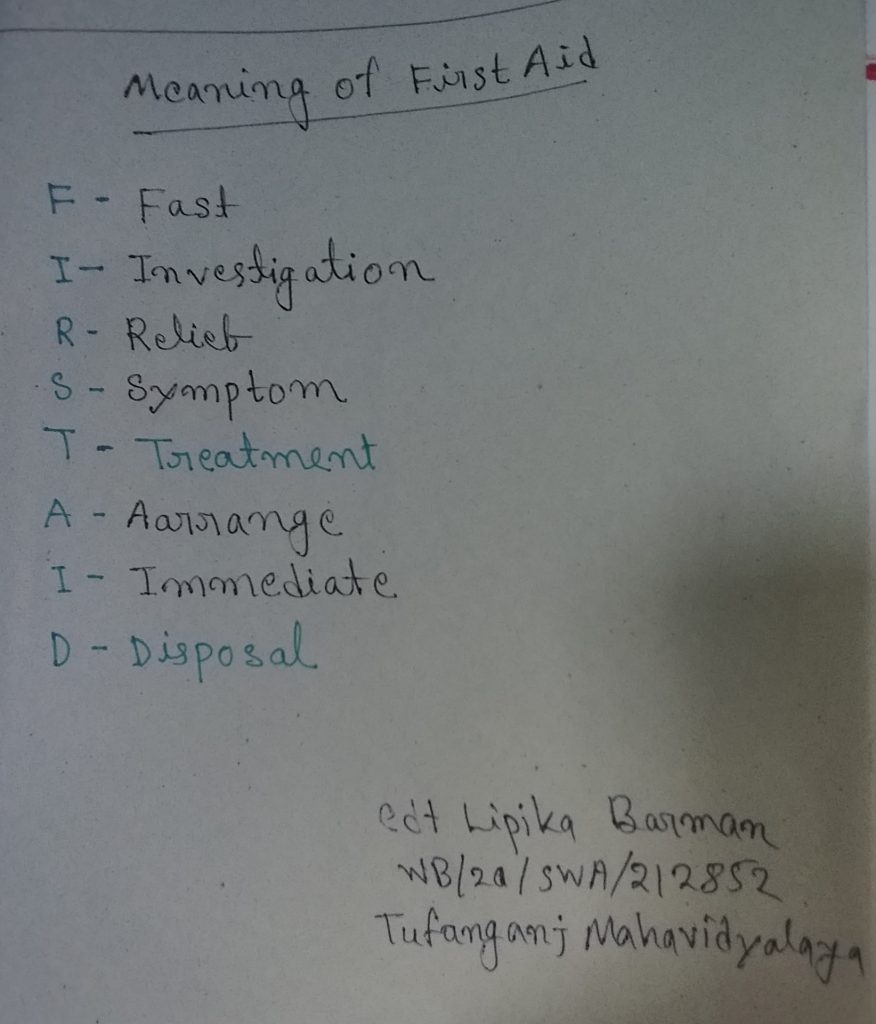 Meaning of First Aid
F - Fast
I - Investigation
R - Relief
S - Symptom
T - Treatment
A - Aarrange
I - Immediate
D - Disposal
cdt Lipika Barman
WB/20/SWA/212852
Tufanganj Mahavidyalaya